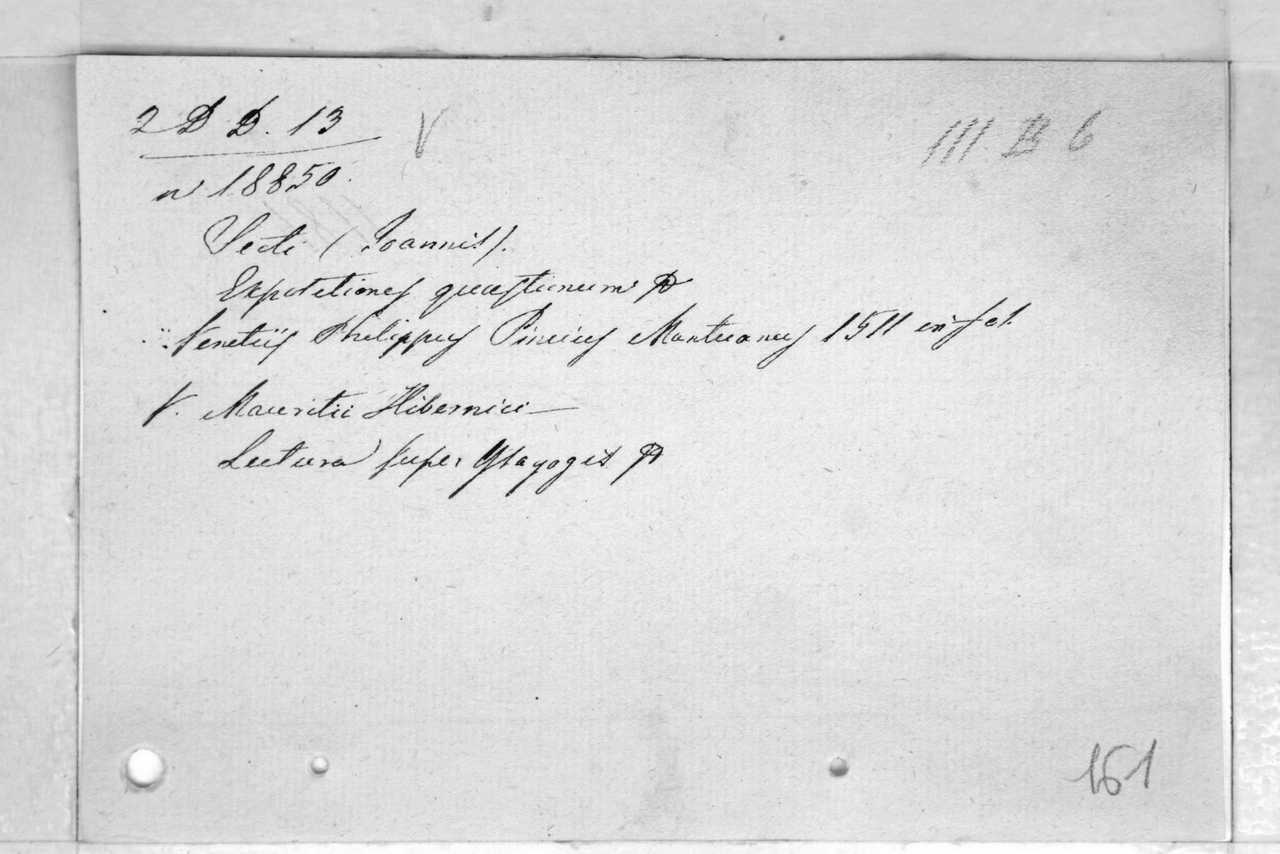 2 D D. 13 V III B 6
n 18850.
Scoti (Joannis).
Expositiones quaestionum &
Venetiis Philippus Pincius Mantuanus 1511 in fol.
V. Mauritii Hibernici —
Lectura super Ysagogis &
161